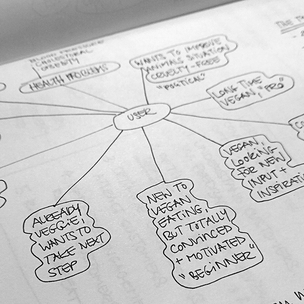 HEALTH PROBLEMS
WANTS TO IMPROVE
ANIMALS SITUATION
CRUELTY-FREE
"POLITICAL"
LONG TIME
VEGAN, "PRO"
USER
VEGAN,
LOOKING
FOR NEW
INPUT +
INSPIRATION
ALREADY
VEGGIE!
WANTS TO
TAKE NEXT
STEP
NEW TO
VEGAN
EATING,
BUT TOTALLY
CONVINCED
+ MOTIVATED
"BEGINNER"